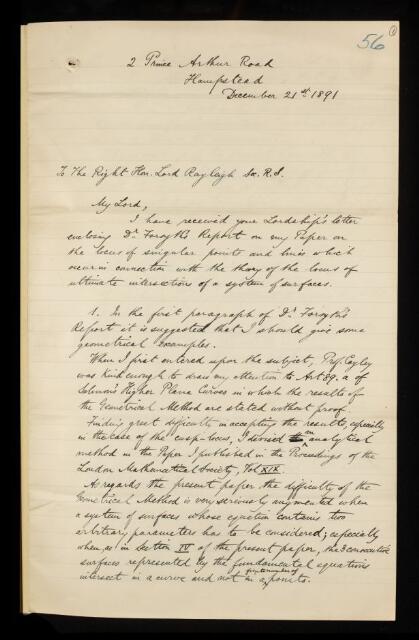 1
56
2 Prince Arthur Road
Hampstead
December 21st 1891
To The Right Hon. Lord Rayleigh Sec. R.S.
My Lord,
I have received your Lordship's letter
enclosing Dr. Forsyth's Report on my Paper on
the locus of singular points and lines which
occur in connection with the theory of the locus of
ultimate intersections of a system of surfaces.
1. In the first paragraph of Dr. Forsyth's
Report it is suggested that I should give some
geometrical examples.
When I first entered upon the subject, Prof. Cayley
was kind enough to draw my attention to Art 89. a of
Salmon's Higher Plane Curves in which the results of
the Geometrical Method are stated without proof.
Finding great difficulty in accepting the results, especially
in the case of the cusp-locus, I devised an analytical
method in the Paper I published in the Proceedings of the
London Mathematical Society, Vol XIX.
As regards the present paper the difficulty of the
Geometrical Method is very seriously augmented when
a system of surfaces whose equation contains two
arbitrary parameters has to be considered; especially
when, as in Section IV of the present paper, the 3 consecutive
surfaces represented by the fundamental equations
intersect in a curve and not in a finite number of points.